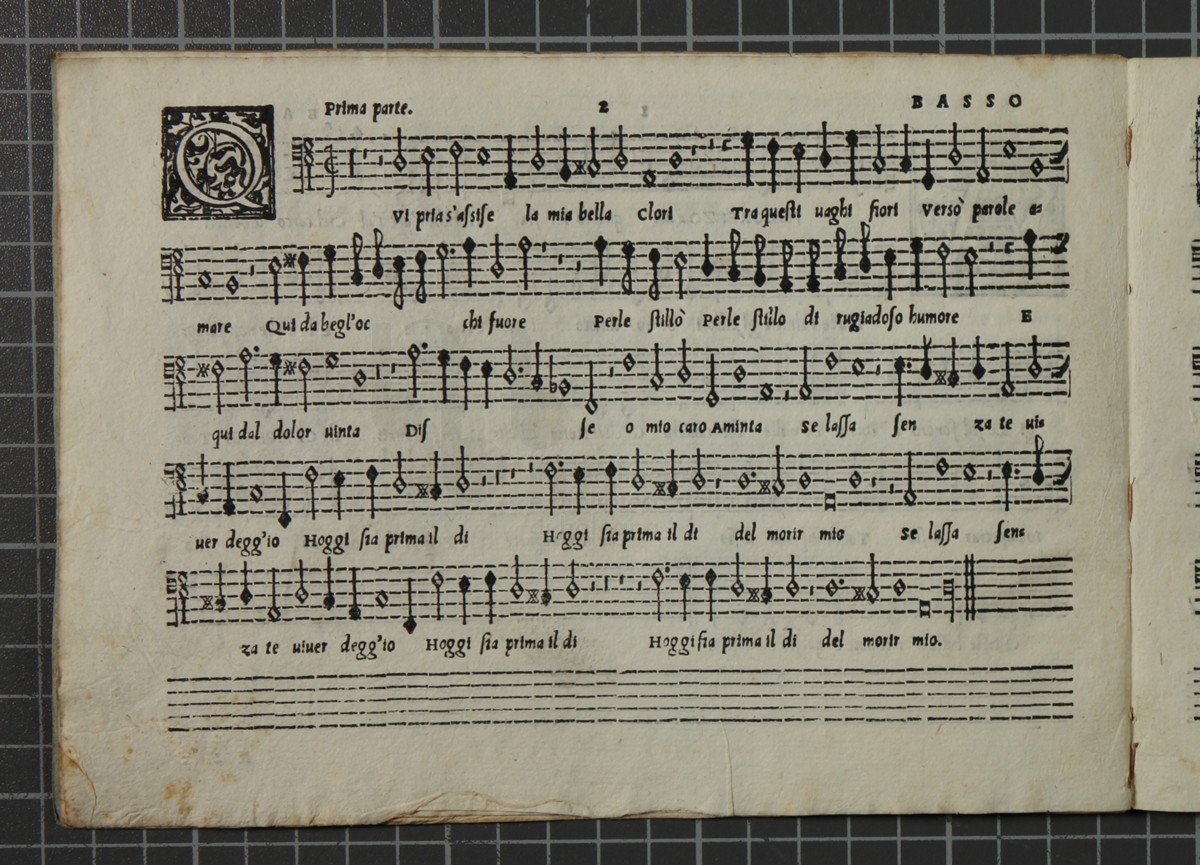 Prima parte. 2 BASSO
QVi pria s'assise la mia bella Clori Tra questi uaghi fiori Versò parole a=
mare Qui da begl'oc chi fuore Perle stillò Perle stillo di rugiadoso humore E
qui dal dolor uinta Dis se o mio caro Aminta Se lassa sen za te uiu
uer degg'io Hoggi sia prima il di Hoggi sia prima il di del morir mio Se lassa sen=
za te uiuer degg'io Hoggi sia prima il di Hoggi sia prima il di del morir mio.